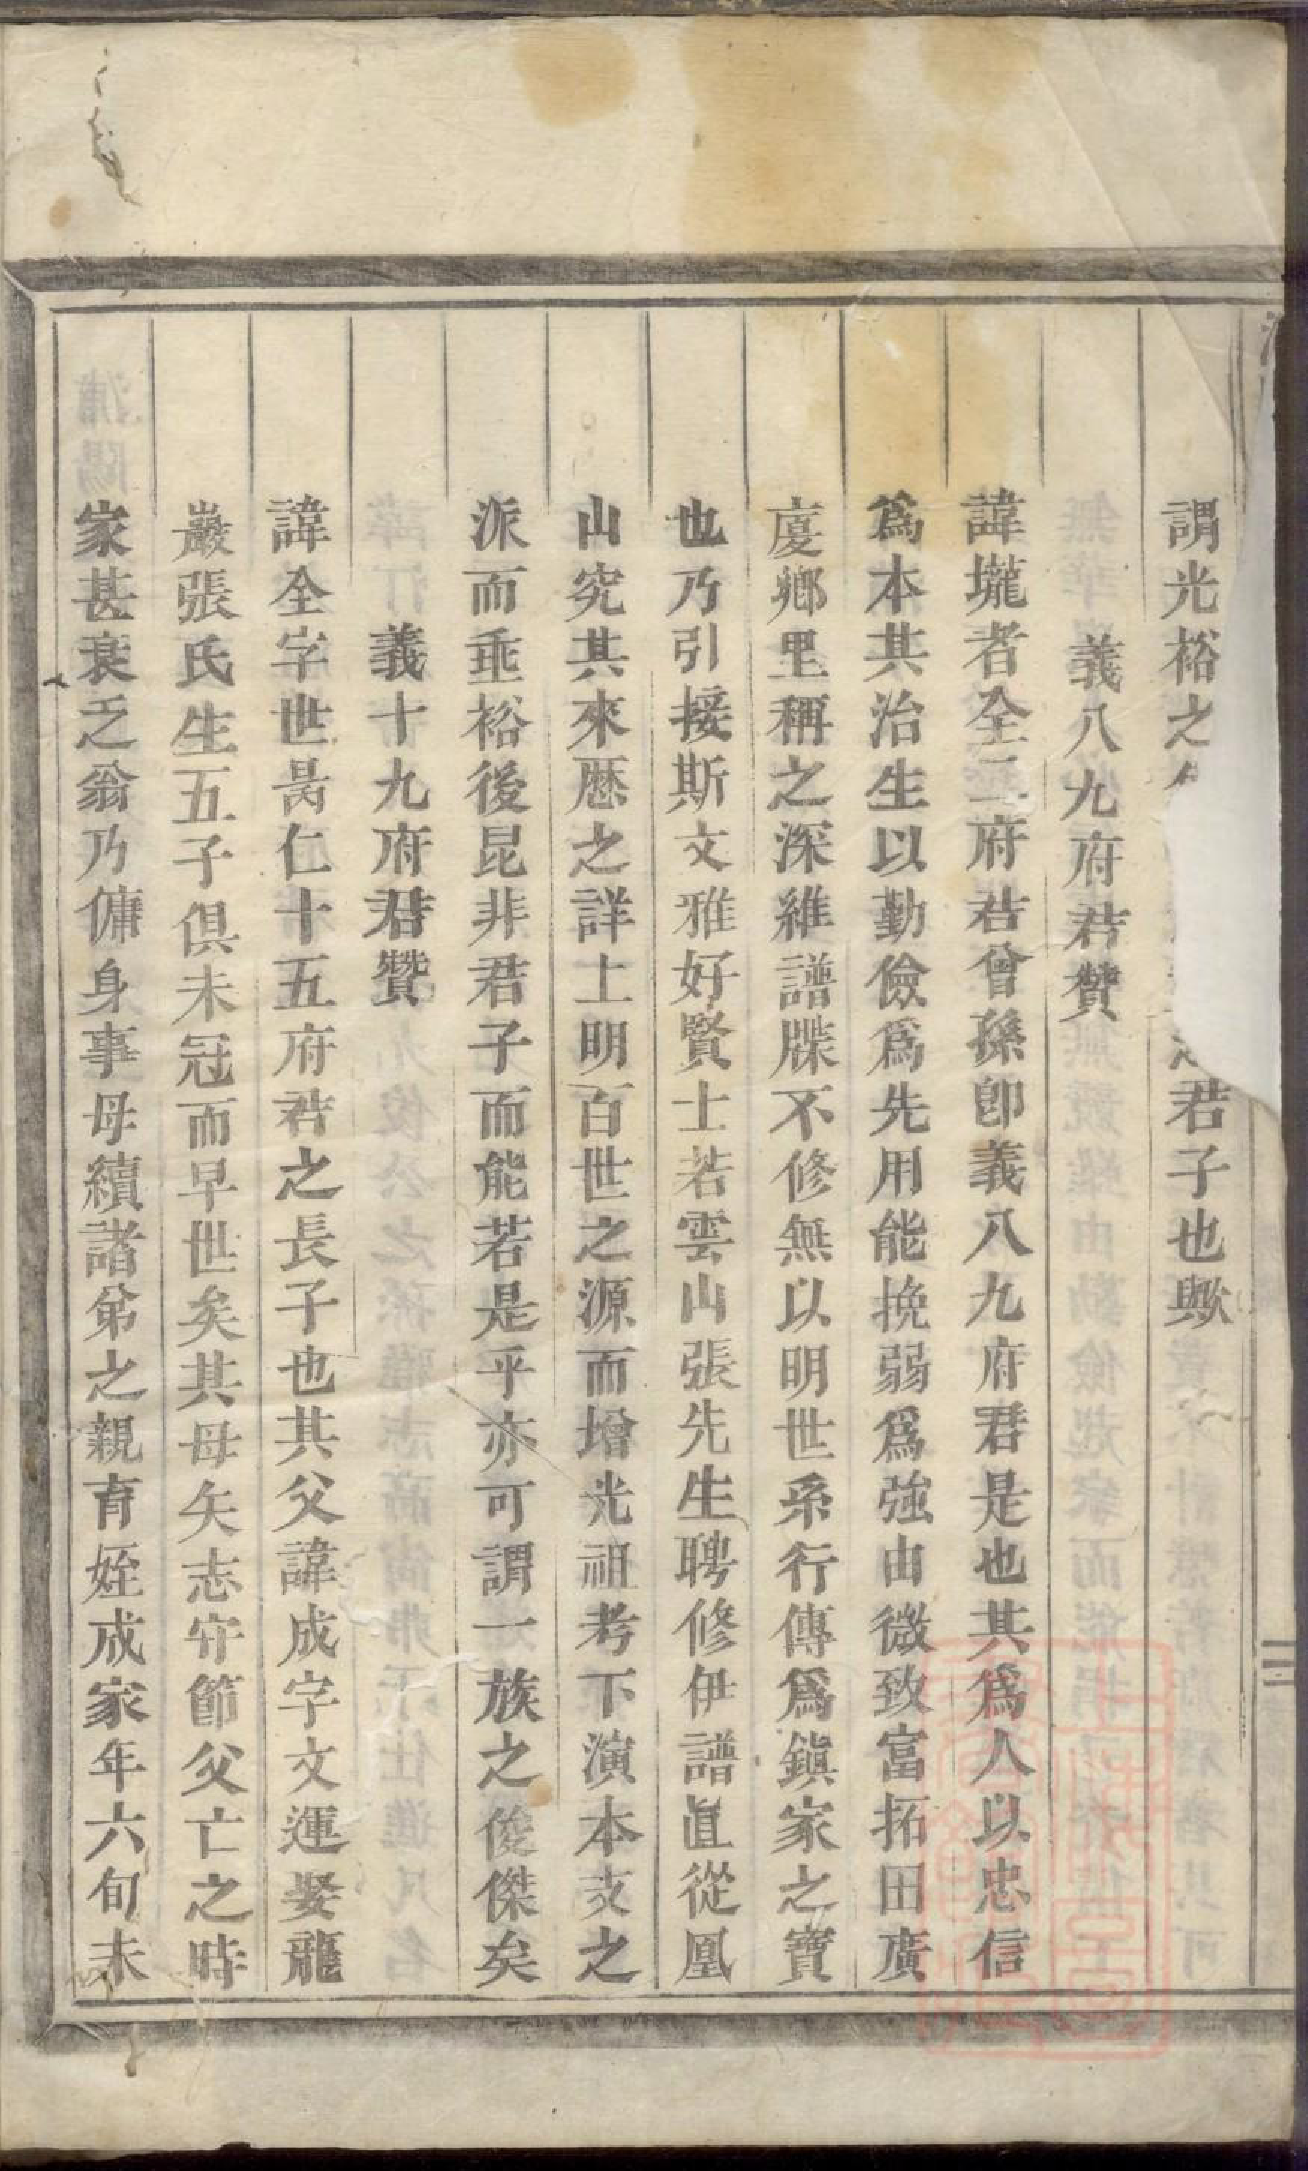 謂光裕之君子也歟
義八九府君贊
諱壠者全二府君曾孫卽義八九府君是也其爲人以忠信
爲本其治生以勤儉爲先用能挽弱爲強由微致富拓田廣
廈鄉里稱之深維譜牒不修無以明世系行傳爲鎮家之寶
也乃引接斯文雅好賢士若雲山張先生聘修伊譜直從鳳
山究其來歷之詳上明百世之源而增光祖考下演本支之
派而垂裕後昆非君子而能若是乎亦可謂一族之俊傑矣
義十九府君贊
諱全字世昺仁十五府君之長子也其父諱成字文運娶龍
巖張氏生五子俱未冠而早世矣其母矢志守節父亡之時
家甚衰乏翁乃傭身事母續諸弟之親育姪成家年六旬未